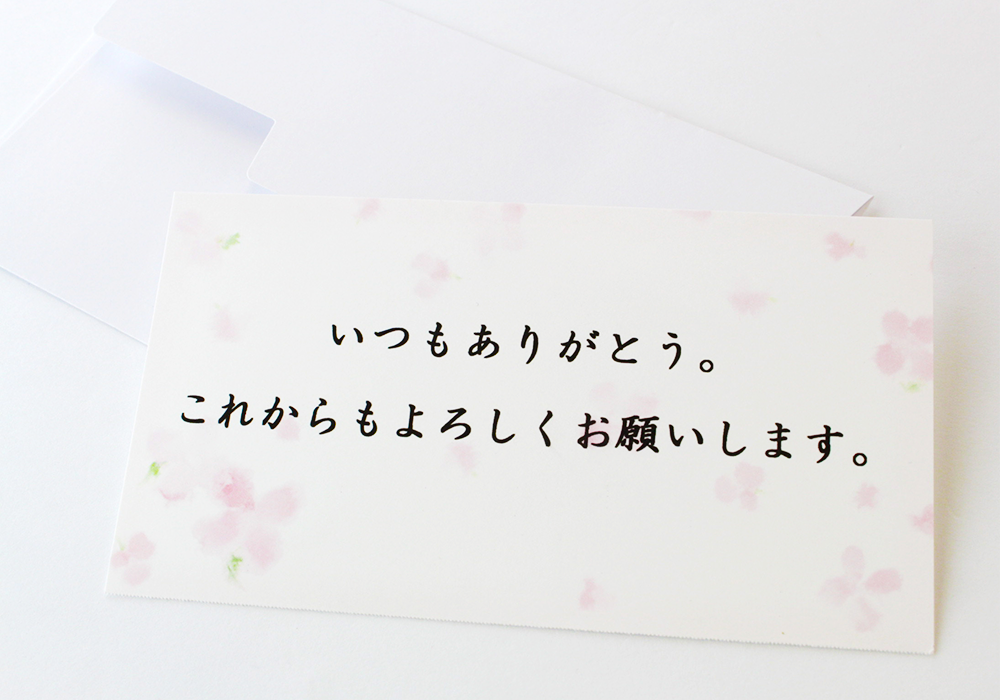 いつもありがとう。
これからもよろしくお願いします。